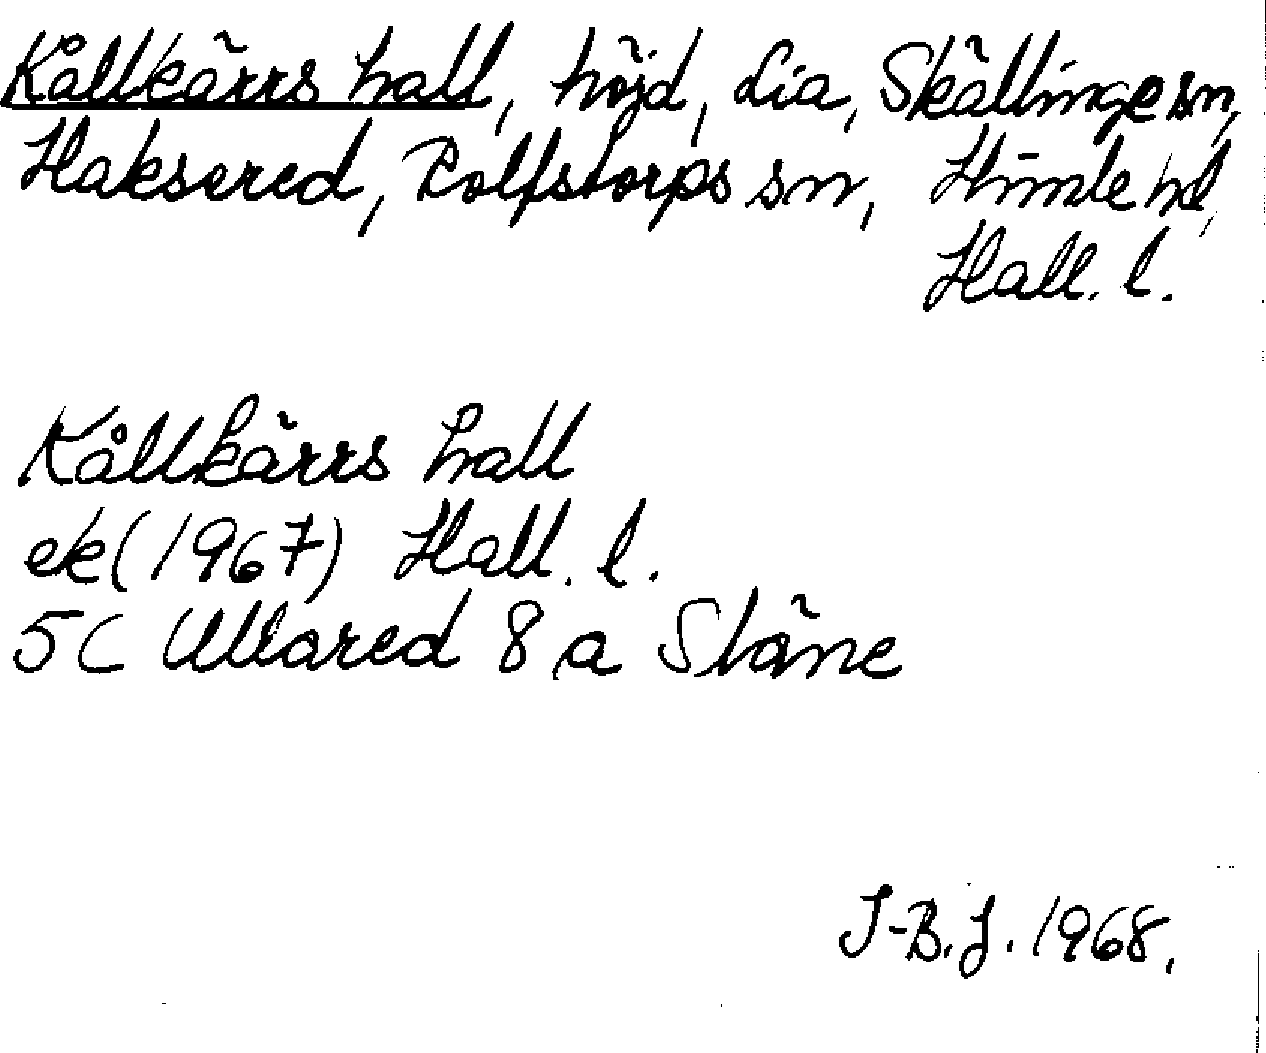 Kållkärrs hall, höjd, Lia, Skällinge sn,
Haksered, Rolfstorps sn, Himle hd,
Hall. l.
Kållkärrs hall
ek (1967) Hall. l.
5C Ullared 8 a Släne
I-B.J. 1968.